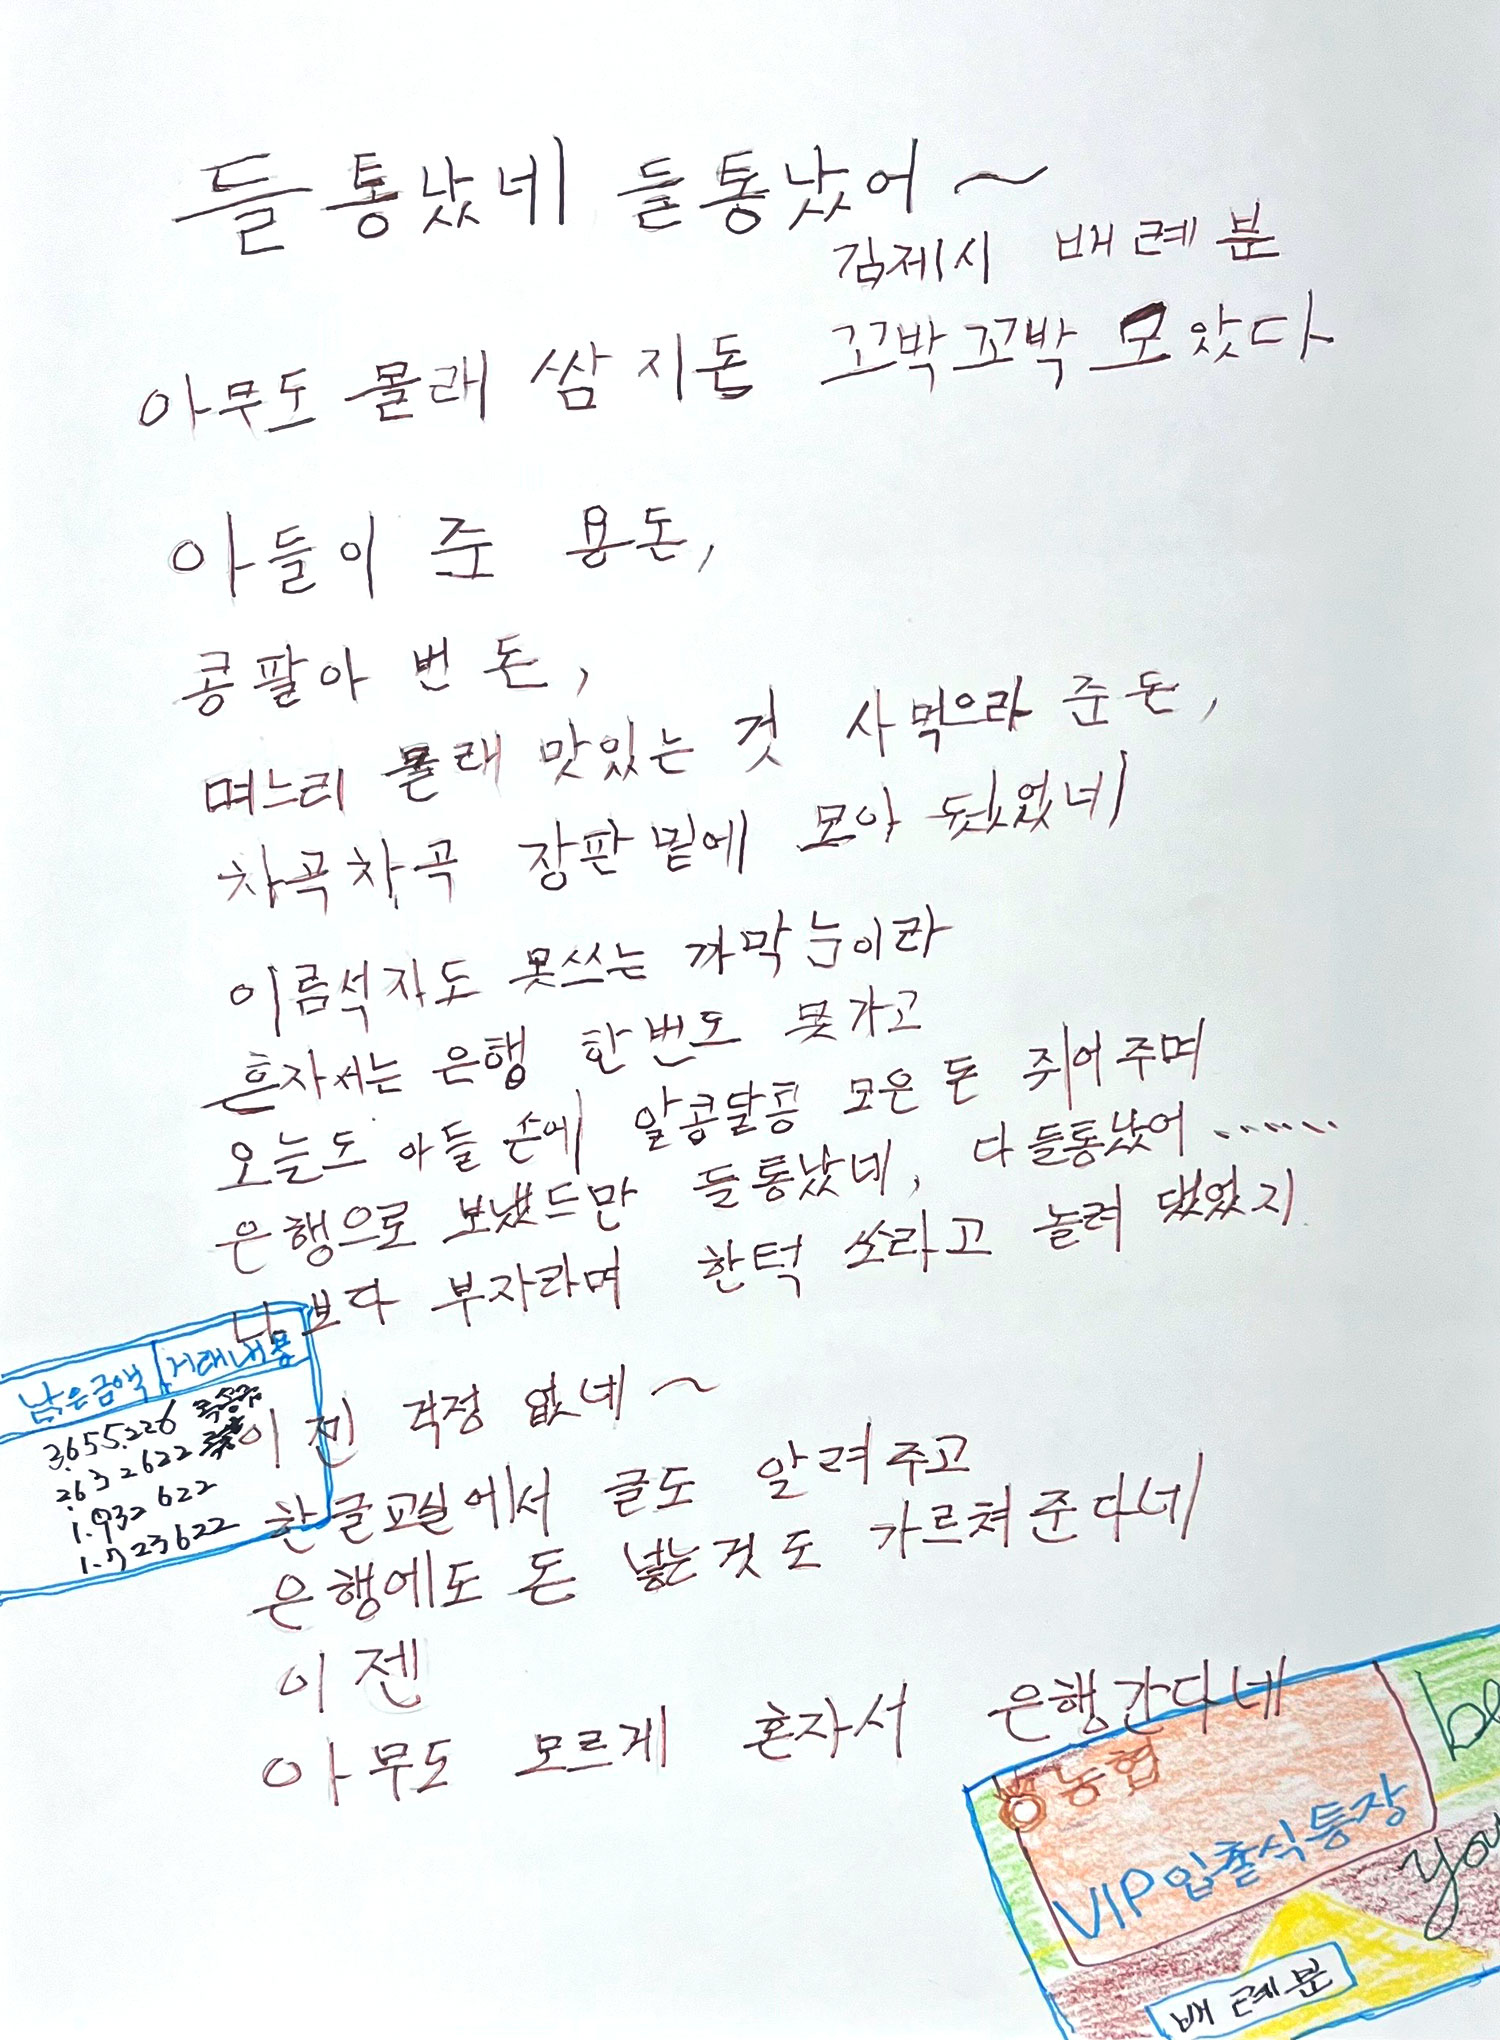 들통났네 들통났어~
김제시 배례분
아무도 몰래 쌈지돈 꼬박꼬박 모았다
아들이 준 용돈,
콩팔아 번 돈,
며느리 몰래 맛있는 것 사먹으라 준돈,
차곡차곡 장판밑에 모아 뒀었네
이름석자도 못쓰는 까막눈이라
혼자서는 은행 한번도 못가고
오늘도 아들 손에 알콩달콩 모은 돈 쥐어주며
은행으로 보냈드만 들통났네, 다들통났어......
보다 부자라며 한턱 쏘라고 놀려 댔었지.
이젠 걱정 없네~
한글교실에서 글도 알려주고
은행에도 돈 넣는것도 가르쳐준다네
이젠
아무도 모르게 혼자서 은행간다네
남은금액 거래내용
3.655.226
2.632622
1.932622
1.723622
농협
VIP입출식통장
be
you
배례분